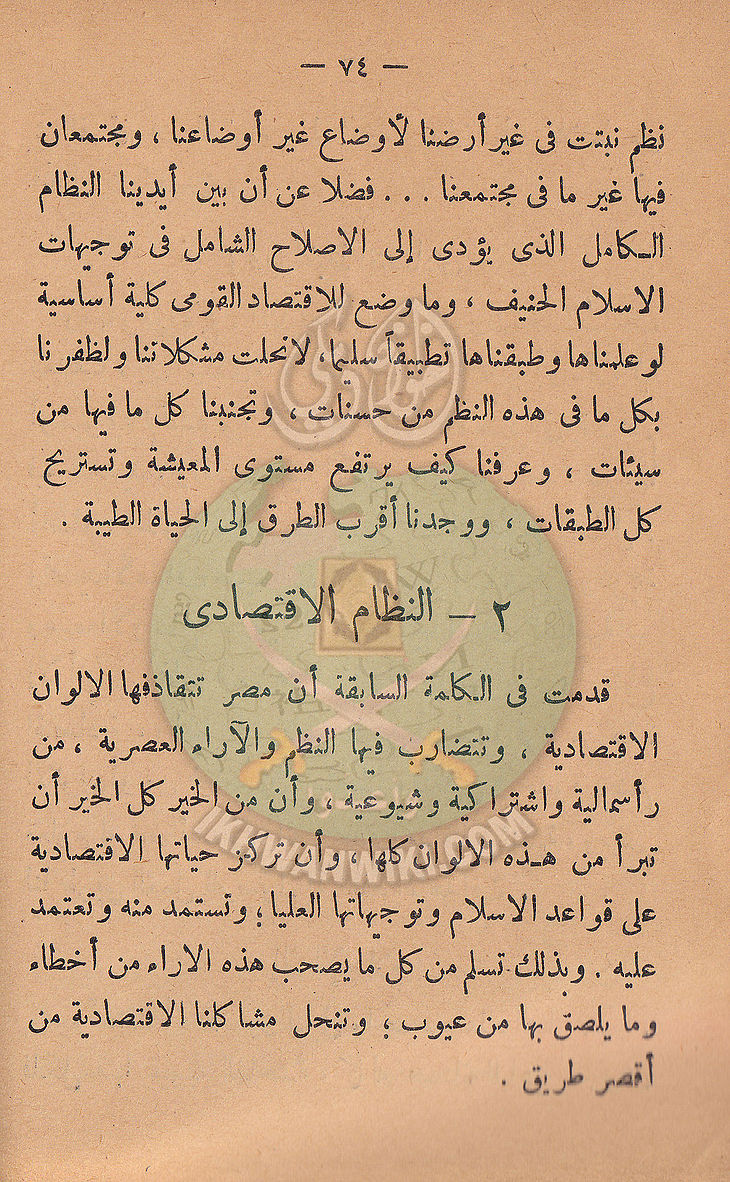 — ٧٤ —
نظم نبتت فى غير أرضنا لأوضاع غير أوضاعنا ، ومجتمعان
فيها غير ما فى مجتمعنا . . . فضلا عن أن بين أيدينا النظام
الكامل الذى يؤدى إلى الاصلاح الشامل فى توجيهات
الاسلام الحنيف ، وما وضع للاقتصاد القومى كلية أساسية
لو علمناها وطبقناها تطبيقاً سليما، لانحلت مشكلاتنا ولظفرنا
بكل ما فى هذه النظم من حسنات ، وتجنبنا كل ما فيها من
سيئات ، وعرفنا كيف يرتفع مستوى المعيشة وتستريح
كل الطبقات ، ووجدنا أقرب الطرق إلى الحياة الطيبة .
٢ — النظام الاقتصادى
قدمت فى الكلمة السابقة أن مصر تتقاذفها الالوان
الاقتصادية ، وتتضارب فيها النظم والآراء العصرية ، من
رأسمالية واشتراكية وشيوعية ، وأن من الخير كل الخير أن
تبرأ من هذه الالوان كلها ، وأن تركيز حياتها الاقتصادية
على قواعد الاسلام وتوجيهاتها العليا ؛ وتستمد منه وتعتمد
عليه . وبذلك تسلم من كل ما يصحب هذه الاراء من أخطاء
وما يلصق بها من عيوب ؛ وتنحل مشاكلنا الاقتصادية من
أقصر طريق .
IKHWANWIKI.COM